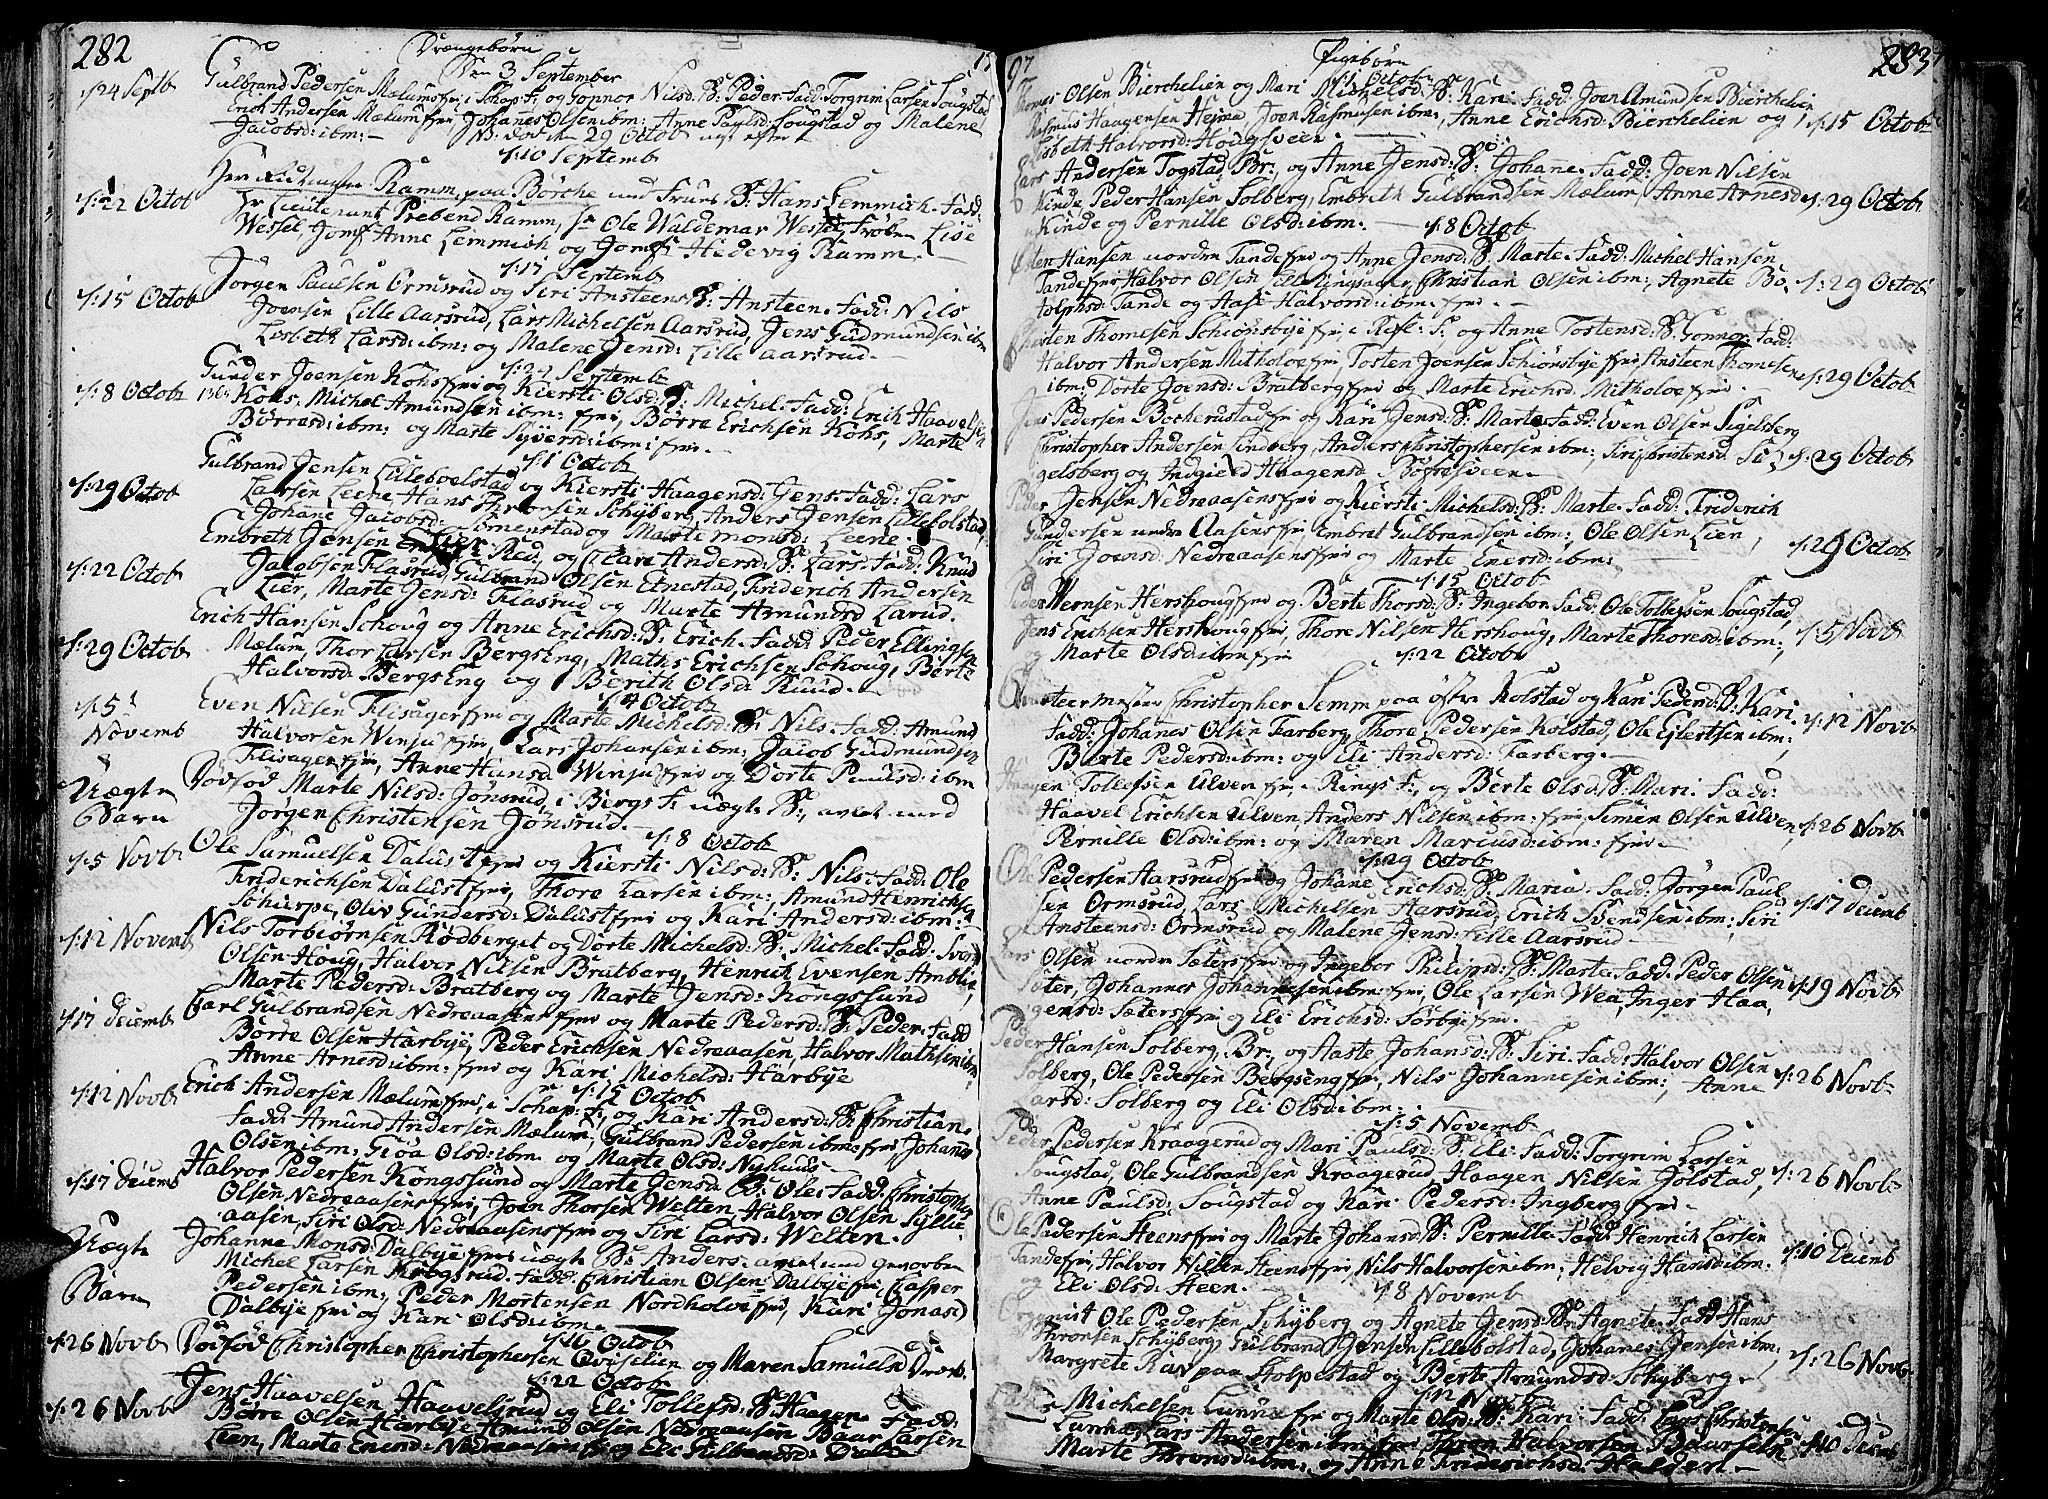 282
Drængebørn
17
Den 3 September
/:24 Septb
Gulbrand Pedersen Mælums fri i Schap: F: og Gonnor Nilsd: B: Peder. Fadd: Torgrim Larsen Sougstad
Erich Andersen Mælum fri Johanes Olsen ibm: Anne Paulsd: Sougstad og Malene
Jacobsd: ibm: —
29 Octob
/:10 Septemb
/:22 Octob
Ramm paa Børche med Frues B: Hans Lemmich. Fadd:
Hr Lieutenant Prebend Ramm, Sr Ole Waldemar Wessel, Frøken Lise
Wessel, Jomf Anne Lemmich og Jomf Hedevig Ramm. —
/:17 Septemb
/:15 Octob
Jørgen Paulsen Ormsrud og Siri Ansteens B: Ansteen. Fadd: Nils
Joensen Lille Aarsrud, Lars Michelsen Aarsrud, Jens Gudmundsen ibm
Lisbeth Larsd: ibm: og Malene Jensd: Lille Aarsrud. —
/:24 Septemb
/:8 Octob
Gunder Joensen Kohs fri og Kiersti Olsd: B: Michel. Fadd: Erich Haavelsen
Kohs, Michel Amundsen ibm: fri, Børre Erichsen Kohs, Marte
Børresd: ibm: og Marte Syversd: ibm: fri. —
/:1 Octob
/:29 Octob
Gulbrand Jensen Lillebolstad og Kiersti Haagensd: Gens. Fadd: Lars
Larsen Leene Hans Thronsen Schyberg, Anders Jensen Lillebolstad,
Johane Jacobsd: Simenstad og Marte Monsd: Leene. —
/:22 Octob
Embreth Jensen Red: og Clare Andersd: B: Lars. Fadd: Knud
Jacobsen Flasrud, Gulbrand Olsen Enestad, Friderich Andersen
Lier, Marte Jensd: Flasrud og Marte Amundsd Larud.
/:29 Octob
Erich Hansen Schoug og Anne Erichsd: B: Erich. Fadd: Peder Ellingsen
Mælum, Thor Larsen Bergseng, Maths Erichsen Schoug, Berte
Halvorsd: Bergseng og Berith Olsd: Ruud. —
/:4 Octob
/:5
Novemb
Even Nilsen Flisager fri og Marte Michelsd: B: Nils. Fadd: Amund
Halvorsen Winju fri, Lars Johansen ibm: Jacob Gudmundsen
Flisager fri, Anne Hansd: Winju fri og Dorte Paulsd: ibm
Uægte
Barn
Dødfød Marte Nilsd: Jønsrud, i Bergs F: uægte B:, avlet med
Jørgen Christensen Jønsrud. —
/:8 Octob
/:5 Novb
Ole Samuelsen Dalust fri og Kiersti Nilsd: B: Nils. Fadd: Ole
Friderichsen Dalust fri, Thore Larsen ibm:, Amund Henrichsen
Schierpe, Oliv Gundersd: Dalust fri og Kari Andersd: ibm:
/:12 Novemb
Nils Torbiørnsen Rødberget og Dorte Michelsd: B: Michel. Fadd: Svend
Olsen Houg, Halvor Nilsen Bratberg, Henrich Evensen Amblie,
Marte Pedersd: Bratberg og Marte Jensd: Kongssund
/:17 Decemb
Carl Gulbrandsen Nedreaasen fri og Marte Pedersd: B: Peder. Fadd
Børre Olsen Harbye, Peder Erichsen Nedreaasen, Halvor Mathsen ibm
Anne Arnesd: ibm: fri og Kari Michelsd: Harbye
/:15 Octob
/:12 Novb
Erich Andersen Mælum fri, i Schap: F:, og Kari Andersd: B: Christian.
Fadd: Amund Andersen Mælum, Gulbrand Pedersen ibm: fri Johanes
Olsen ibm: Giøa Olsd: ibm og Marte Olsd: Nyhuus
/:17 Decemb
Halvor Pedersen Kongssund og Marte Jensd: B: Ole. Fadd: Christopher
Olsen Nedreaasens fri, Joen Thorsen Welten, Halvor Olsen Syllie
aasen, Siri Olsd: Nedreaasens fri og Siri Larsd: Welten. —
Uægte
Barn
Johanne Monsd: Dalbye fri uægte B: Anders. avlet med
Michel Larsen Krogsrud. Fadd: Christian Olsen Dalbye fri, Casper
Pedersen ibm:, Peder Mortensen Nordholve fri, Kari Jonasd
Dalbye fri og Kari Olsd: ibm —
/:16 Octob
/:26 Novb
Dødfød Christopher Christophersen Qviselien og Maren Samuelsd Dr: B:
/:22 Octob
/:26 Novb
Jens Haavelsen Haavelsrud og Eli Tollefsd: B: Haagen. Fadd:
Børre Olsen Harbye Amund Olsen Nedreaasen Baar Larsen
Lien, Marte Enersd: Nedreaasen fri og Eli Gulbrandsd:
97
Pigebørn
283
/:1 Octob
Thomes Olsen Bierchelien og Mari Michelsd: B: Kari. Fadd: Joen Amundsen Bierchelien
Rasmus Haagensen Hejme Joen Rasmusen ibm:, Anne Erichsd: Bierchelien og
Lisbeth Halvorsd: Hougsveen.
/:15 Octob
Lars Andersen Togstad, Br:, og Anne Jensd: B: Johane. Fadd: Joen Nilsen
Kinde Peder Hansen Solberg, Embreth Gulbrandsen Mælum, Anne Arnesd
Kinde og Pernille Olsd: ibm. —
/:29 Octob
/:8 Octob
Østen Hansen nordre Tande fri og Anne Jensd: B: Marte. Fadd: Michel Hansen
Tande fri Halvor Olsen Ellingsager, Christian Olsen ibm:, Agnete Bo,
tolphsd: Tande og Aase Halvorsd: ibm. fri. —
/:29 Octob
Thomesen Schionsbye fri i Ris: F: og Anne Tostensd: B: Gonnor. Fadd:
Halvor Andersen Mitholoe fri, Tosten Joensen Schionsbye fri, Ansteen Thomesen
ibm:, Dorte Joensd: Bratberg fri og Marte Erichsd: Mitholoe fri.
/:29 Octob
Jens Pedersen Bocherustad fri og Kari Jensd: B: Marte. Fadd: Even Olsen Sigelsberg
Christopher Andersen Lindberg, Anders Christophersen ibm:, Siri Christensd: Si
gelsberg og Indgier Haagensd: Bøfrosveen. —
/:29 Octob
Peder Jensen Nedreaasens fri og Kiersti Michelsd: B: Marte. Fadd: Friderich
Gundersen nedre Aasens fri, Embret Gulbrandsen ibm:, Ole Olsen Lien,
Siri Joensd: Nedreaasens fri og Marte Enersd: ibm:
/:29 Octob
/:15 Octob
Peder Wernsen Hershoug fri og Berte Thorsd: B: Ingebor. Fadd: Ole Tollefsen Sougstad,
Jens Erichsen Hershoug fri, Thore Nilsen Hershoug, Marte Thoresd: ibm:,
og Marte Olsd: ibm fri
/:5 Novb
/:22 Octob
Christopher Semm paa østre Kolstad og Kari Pedersd: B: Kari.
Fadd: Johanes Olsen Farberg, Thore Pedersen Kolstad, Ole Eilertsen ibm:,
Berte Pedersd: ibm: og Eli Andersd: Farberg. —
/:12 Novb
Haagen Tollefsen Ulven fri i Rings F:, og Berte Olsd: B: Mari. Fadd:
Haavel Erichsen Ulven, Anders Nilsen ibm: fri, Simen Olsen Ulven,
Pernille Olsd: ibm: og Maren Mariusd: ibm: fri. —
/:26 Novb
/:29 Octob
Ole Pedersen Aarsrud fri og Johane Erichsd: B: Maria. Fadd: Jørgen Paul
sen Ormsrud, Lars Michelsen Aarsrud, Erich Svendsen ibm: Siri
Ansteensd: Ormsrud og Malene Jensd: Lille Aarsrud —
/:17 Decemb
Lars Olsen nordre Sæters fri og Ingebor Philipsd: B: Marte. Fadd: Peder Olsen
Sæter, Johannes Johannesen ibm: fri, Ole Larsen Wea, Inger Haa,
gensd: Sæters fri og Eli Erichsd: Sørbye fri.
/:19 Novb
Peder Hansen Solberg, Br:, og Aaste Johansd: B: Siri. Fadd: Halvor Olsen
Solberg, Ole Pedersen Bergseng fri, Nils Johannesen ibm:, Anne
Larsd: Solberg og Eli Olsd: ibm:
/:26 Novb
/:5 Novemb
Peder Pedersen Kraagerud og Mari Paulsd: B: Eli. Fadd: Torgrim Larsen
Sougstad, Ole Gulbrandsen Kraagerud, Haagen Nilsen Jølstad,
Anne Paulsd: Sougstad og Kari Pedersd: Ingberg fri. —
/:26 Novb
Ole Pedersen Steens fri og Marte Johansd: B: Pernille. Fadd: Henrich Larsen
Tande fri, Halvor Nilsen Steens fri, Nils Halvorsen ibm:, Helvig Hansd: ibm.
og Eli Olsd: Steen. —
/:10 Decemb
/:8 Novemb
Ole Pedersen Schyberg og Agnete Jensd: B: Agnete. Fadd: Hans
Thronsen Schyberg, Gulbrand Jensen Lillebolstad, Johanes Jensen ibm:,
Margrete Rav paa Stolpestad og Berte Amundsd: Schyberg.
/:26 Novb
/:12 Novb
Michelsen Lunde fri og Marte Olsd: B: Kari. Fadd: Lars Christensen
Lunde, Lars Andersen ibm: fri Thron Halvorsen
Marte Thronsd: ibm: og Anne Friderichsd: Halden. —
/:10 Decemb